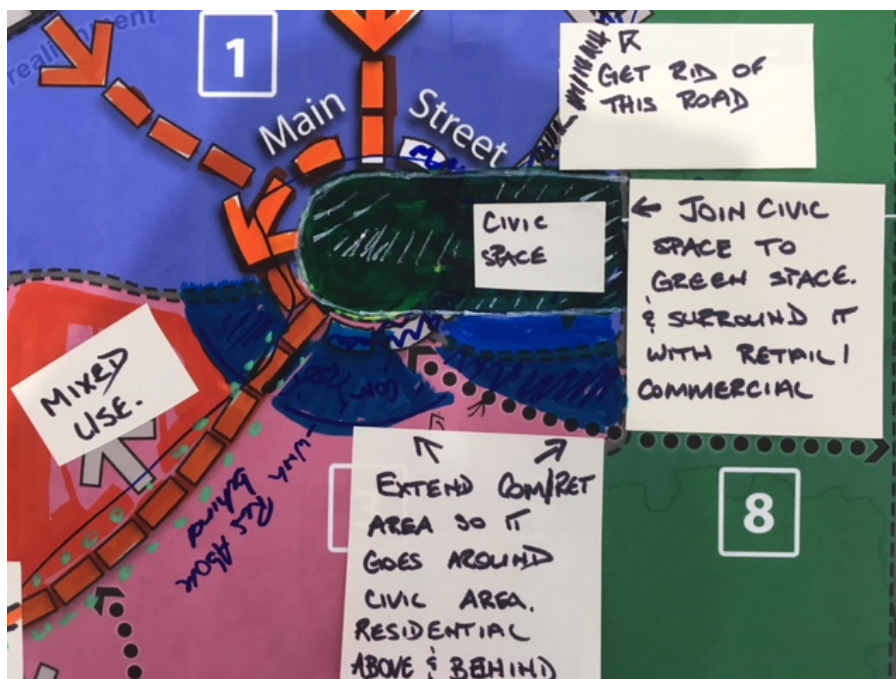 realignment
1
Main Street
GET RID OF
THIS ROAD
CIVIC
SPACE
← JOIN CIVIC
SPACE TO
GREEN SPACE.
& SURROUND IT
WITH RETAIL/
COMMERCIAL
MIXED
USE.
- WITH
RES ABOVE
behind
EXTEND COM/RET
AREA SO IT
GOES AROUND
CIVIC AREA.
RESIDENTIAL
ABOVE & BEHIND
8